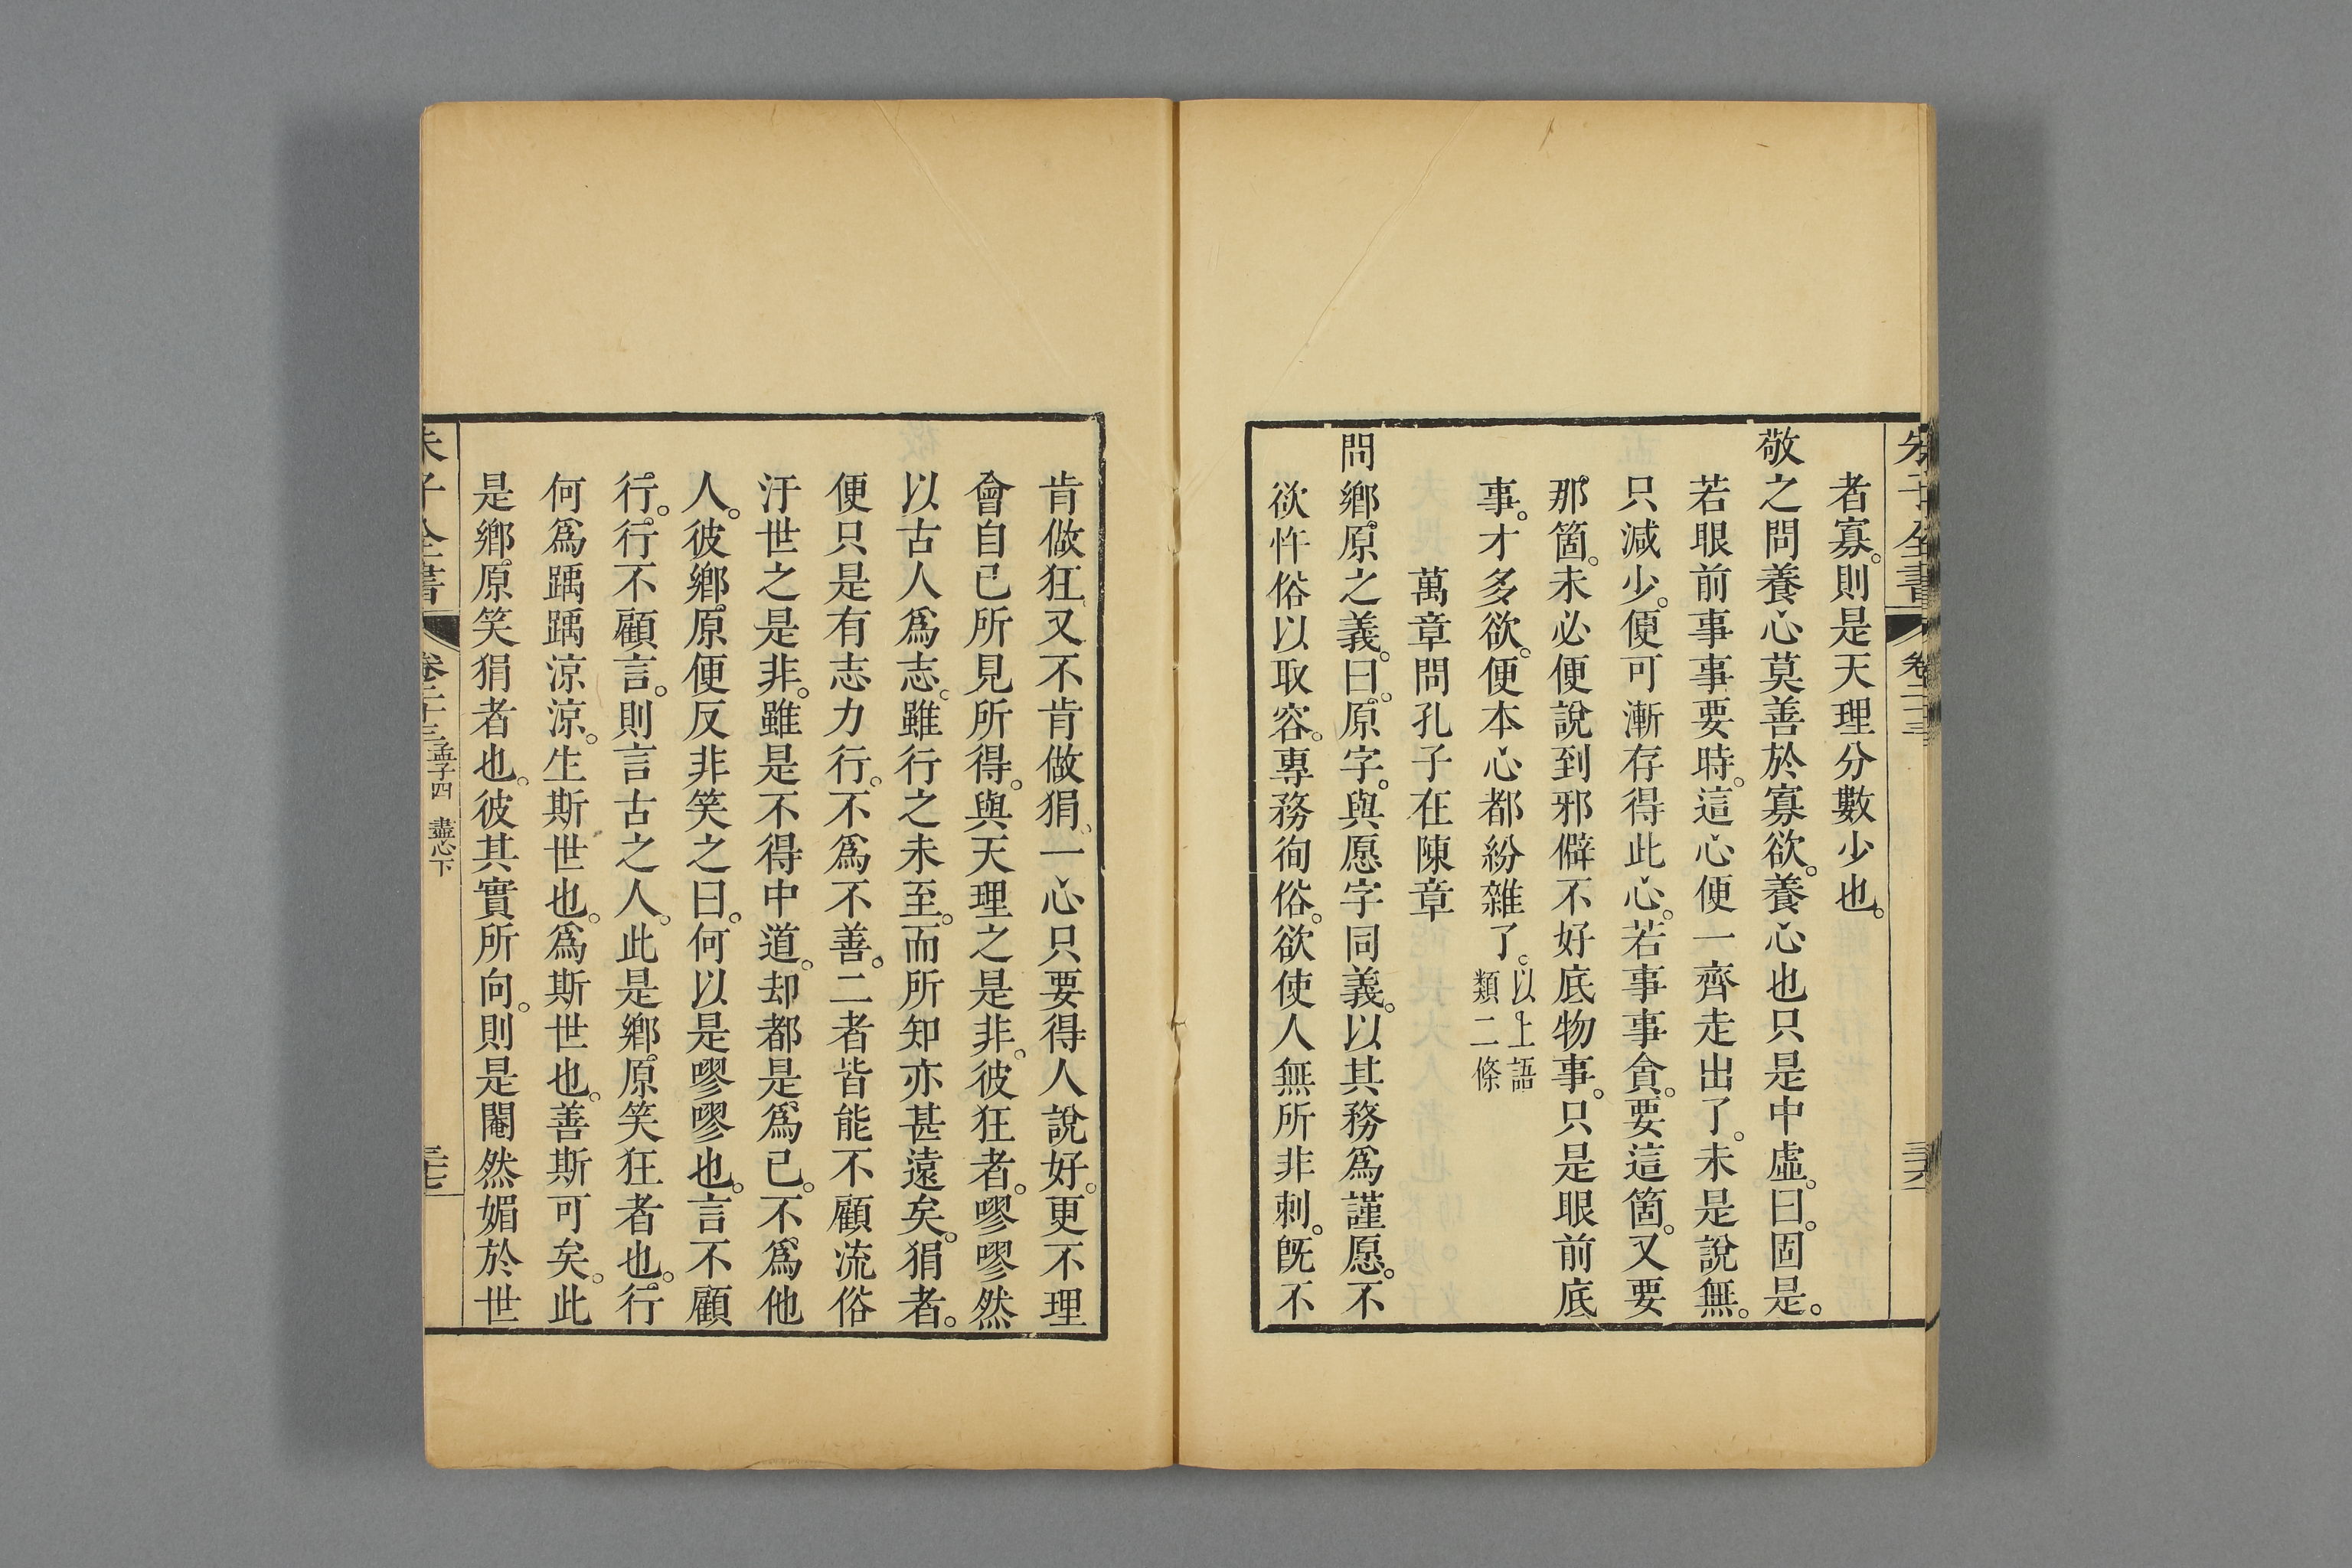 朱子全書 卷二十三 三六
者寡。則是天理分數少也。
敬之問養心莫善於寡欲。養心也只是中虛。曰。固是。
若眼前事事要時。這心便一齊走出了。未是說無。
只減少。便可漸存得此心。若事事貪。要這箇。又要
那箇。未必便說到邪僻不好底物事。只是眼前底
事。才多欲。便本心都紛雜了。以上語
類二條
萬章問孔子在陳章
問鄉原之義。曰。原字。與愿字同義。以其務爲謹愿。不
欲忤俗以取容。專務徇俗。欲使人無所非刺。旣不
肯做狂、又不肯做狷、一心只要得人說好。更不理
會自已所見所得。與天理之是非。彼狂者。嘐嘐然
以古人爲志。雖行之未至。而所知亦甚遠矣。狷者。
便只是有志力行。不爲不善。二者皆能不顧流俗
汙世之是非。雖是不得中道。却都是爲已。不爲他
人。彼鄉原便反非笑之曰。何以是嘐嘐也。言不顧
行。行不顧言。則言古之人。此是鄉原笑狂者也。行
何爲踽踽涼涼。生斯世也。爲斯世也。善斯可矣。此
是鄉原笑狷者也。彼其實所向。則是閹然媚於世
朱子全書 卷二十三 孟子四 盡心下 三七